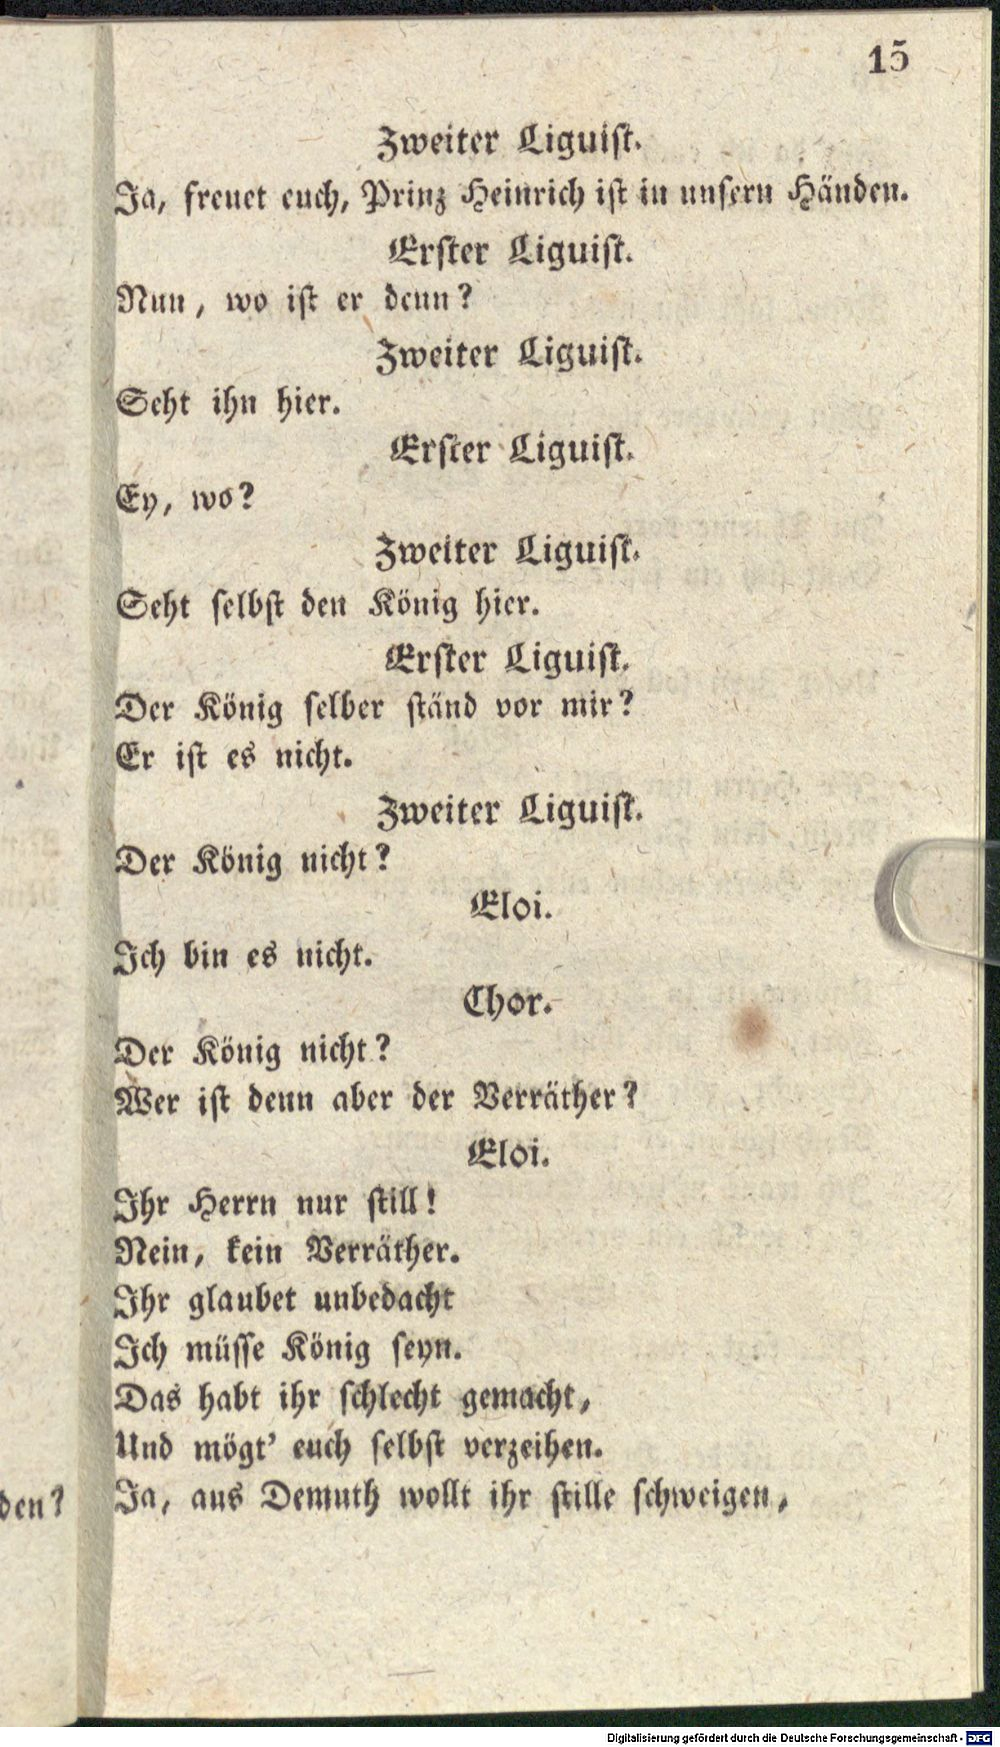 15
Zweiter Liguist.
Ja, freuet euch, Prinz Heinrich ist in unsern Händen.
Erster Liguist.
Nun, wo ist er denn?
Zweiter Liguist.
Seht ihn hier.
Erster Liguist.
Ey, wo?
Zweiter Liguist.
Seht selbst den König hier.
Erster Liguist.
Der König selber ständ vor mir?
Er ist es nicht.
Zweiter Liguist.
Der König nicht?
Eloi.
Ich bin es nicht.
Chor.
Der König nicht?
Wer ist denn aber der Verräther?
Eloi.
Ihr Herrn nur still!
Nein, kein Verräther.
Ihr glaubet unbedacht
Ich müsse König seyn.
Das habt ihr schlecht gemacht,
Und mögt' euch selbst verzeihen.
Ja, aus Demuth wollt ihr stille schweigen,
den?
Digitalisierung gefördert durch die Deutsche Forschungsgemeinschaft - DFG